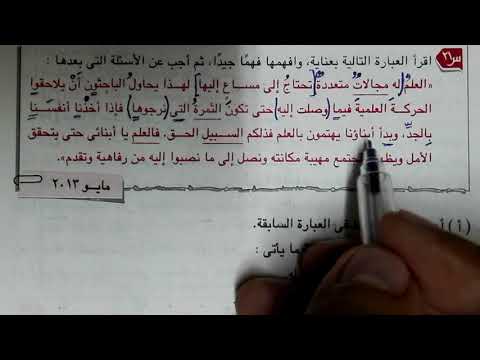 س٢٦ اقرأ العبارة التالية بعناية، وافهمها فهمًا جيدًا، ثم أجب عن الأسئلة التى بعدها :
«العلمُ [له مجالاتٌ متعددةٌ] [تحتاجُ إلى مساعٍ إليها] لهذا يحاولُ الباحثون أنْ يلاحقوا
الحركةَ العلميةَ فيما (وصلت إليه) حتى تكونَ الثمرةُ التى (نرجوها) فإذا أخذْنا أنفسَنا
بالجدِّ، وبدأ أبناؤنا يهتمون بالعلم فذلكم السبيل الحق. فالعلم يا أبنائى حتى يتحقق
الأمل ويظهر المجتمع مهيبة مكانته ونصل إلى ما نصبوا إليه من رفاهية وتقدم».
مايو ٢٠١٣
( أ ) العبارة السابقة.
ما يأتى :